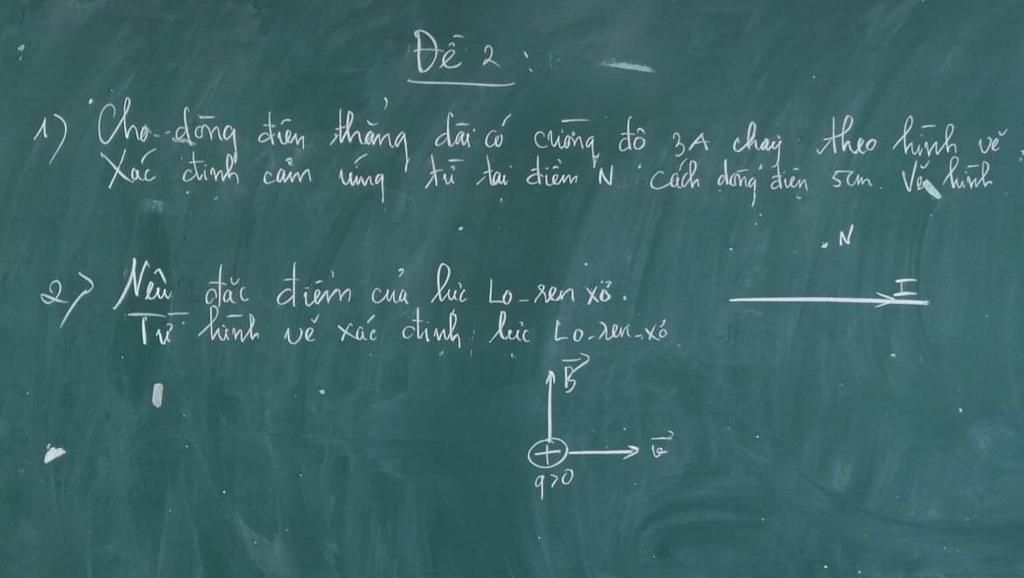 Đề 2:
1) Cho dòng điện thẳng dài có cường độ 3A chạy theo hình vẽ.
Xác định cảm ứng từ tại điểm N cách dòng điện 5cm. Vẽ hình
. N
I
2) Nêu đặc điểm của lực Lo-ren xơ.
Từ hình vẽ xác định lực Lo-ren-xơ
B
+
v
q>0